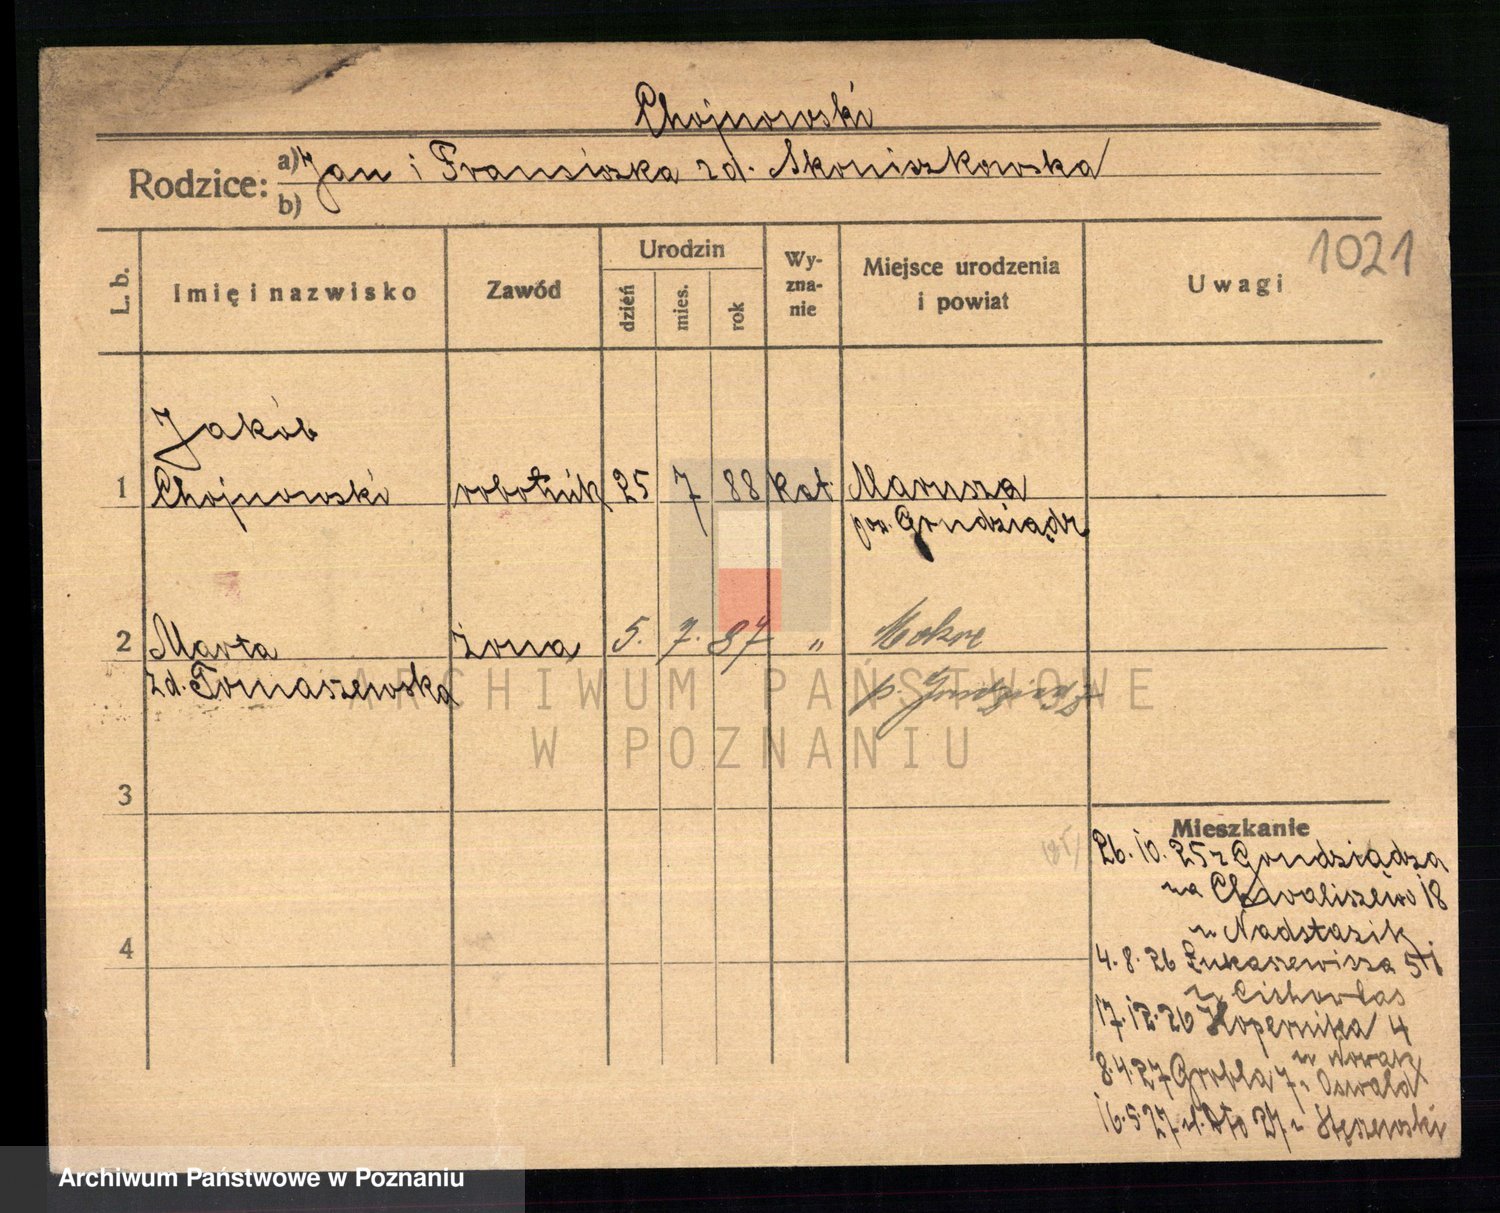 Chojnowski
Rodzice: a) Jan i Fransiszka zd. Skoniszkowska
b)
1021
L. b.
Imię i nazwisko
Zawód
Urodzin
dzień
mies.
rok
Wy-
zna-
nie
Miejsce urodzenia
i powiat
Uwagi
Jakób
1 Chojnowski robotnik 25 7 88 kat. Marusza
pow. Grudziądz
2 Marta żona 5. 7. 87 " Mokre
zd. Tomaszewska p. Grudziądz
ARCHIWUM PAŃSTWOWE
W POZNANIU
3
4
Mieszkanie
26. 10. 25 z Grudziądza
na Chwaliszewo 18
u Nadstazik.
4. 8. 26 Łukaszewicza
17. 12. 26 Kopernika 4
u Nowak
8. 4. 27 Grobla 7 u Oswald
16. 5. 27 27 u Stęszewski
Archiwum Państwowe w Poznaniu